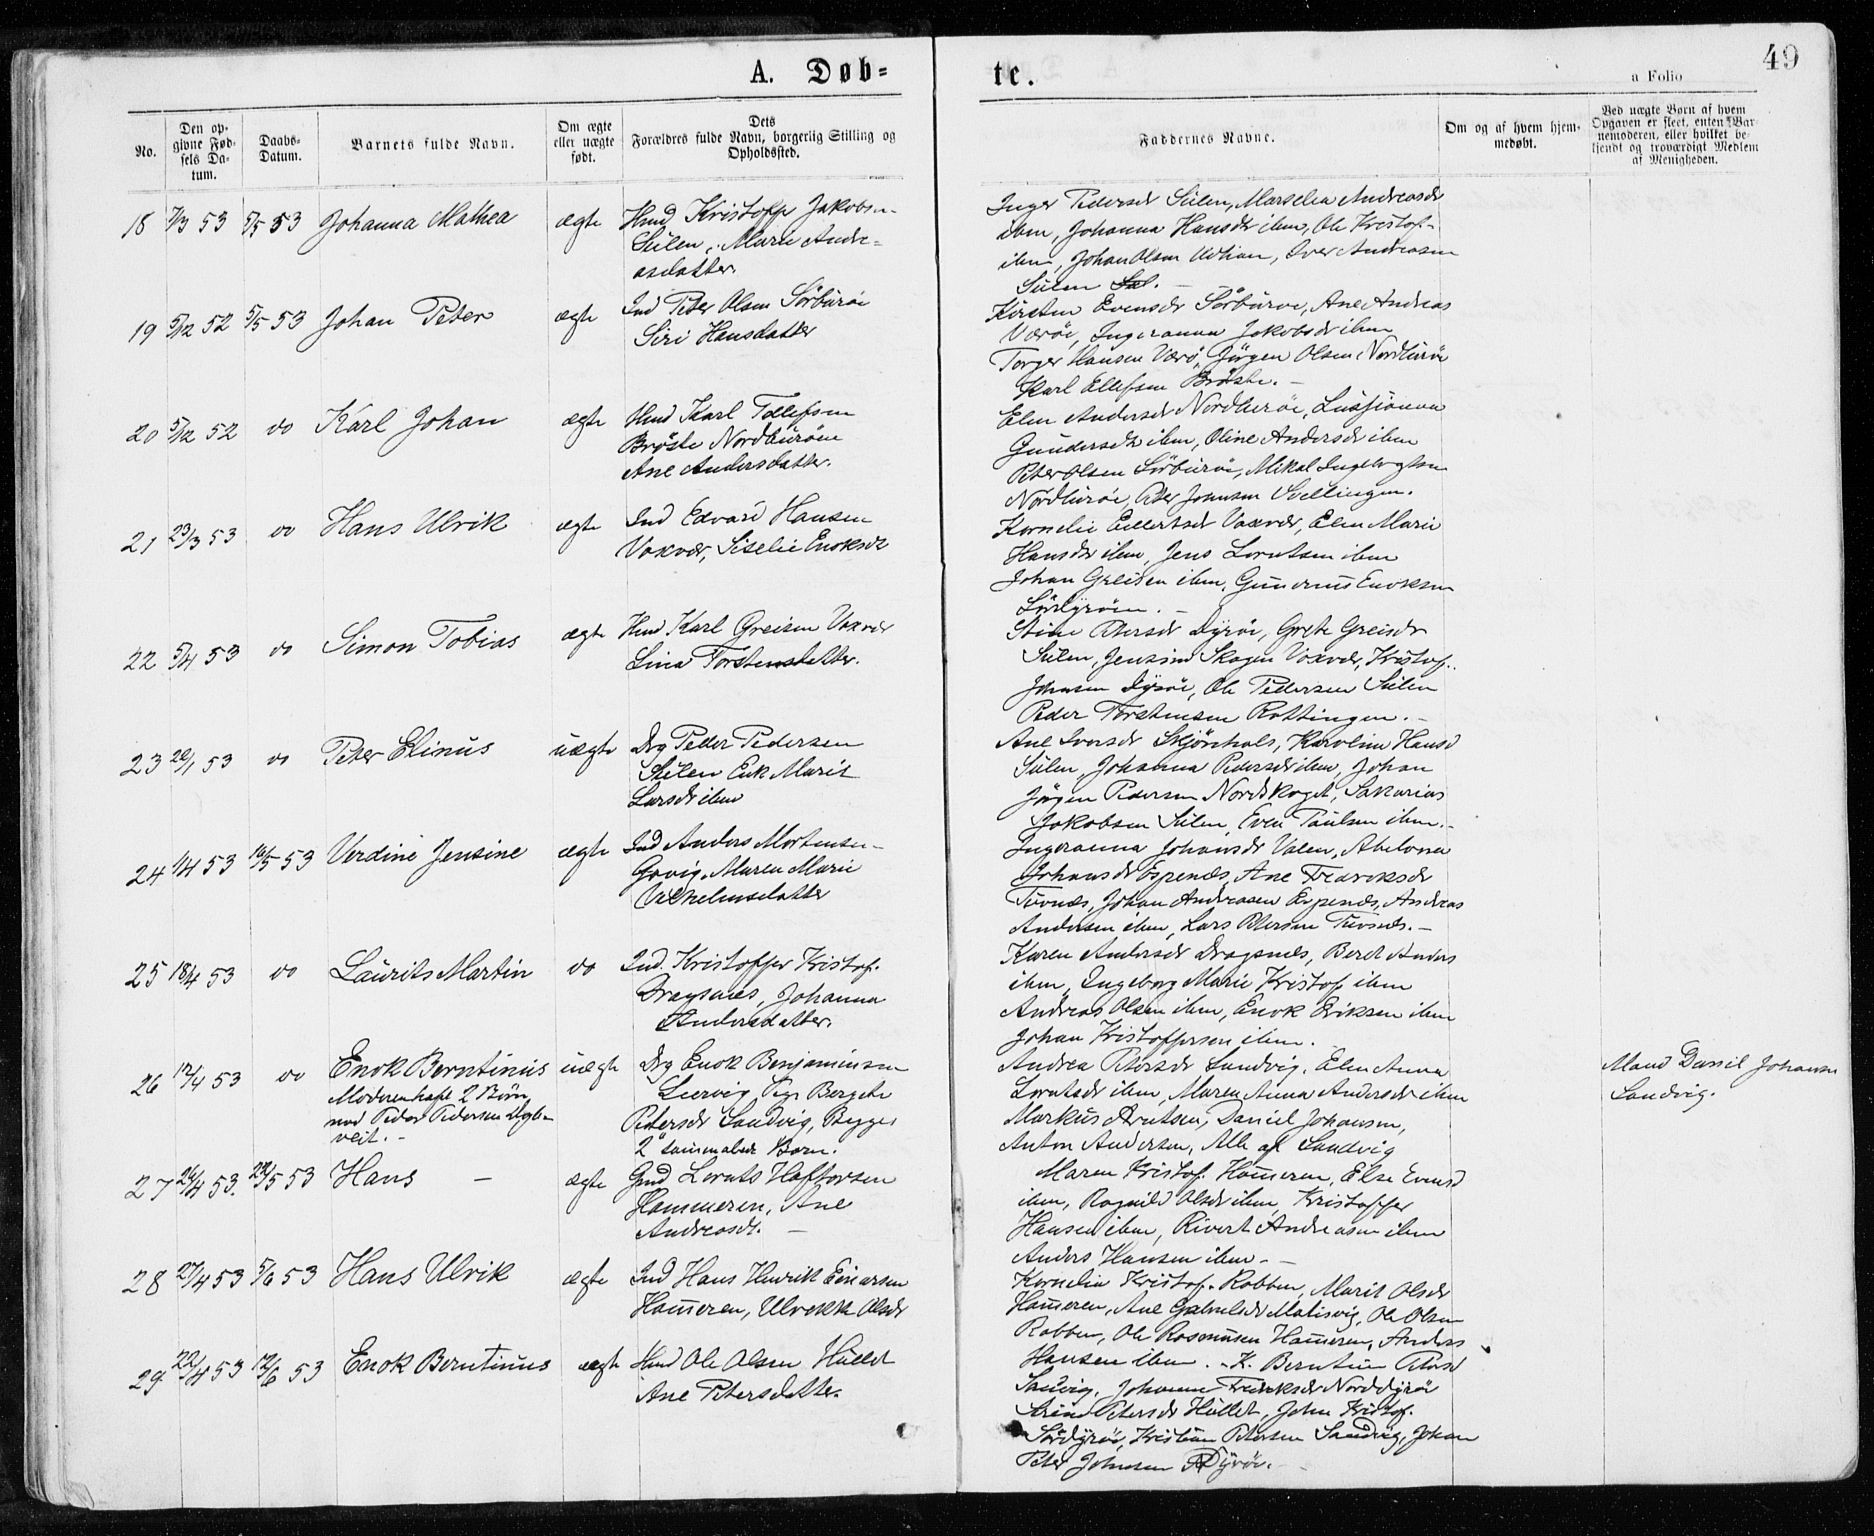 A. Døb=
te.
a Folio
49
No.
Den op-
givne Fød-
sels Da-
tum.
Daabs-
Datum.
Barnets fulde Navn.
Om ægte
eller uægte
født.
Dets
Forældres fulde Navn, borgerlig Stilling og
Opholdssted.
Faddernes Navne.
Om og af hvem hjem-
medøbt.
Ved uægte Børn af hvem
Opgaven er skeet, enten Bar-
nemoderen, eller hvilket be-
kjendt og troværdigt Medlem
af Menigheden.
18 7/3 53 5/5 53 Johanna Mathea ægte Hmd Kristoffr Jakobsn
Sülen, Marie Andre=
asdatter.
Inger Pedersdr Sülen, Marselia Andreasdr
ibm, Johanna Hansdr ibm, Ole Kristof-
ibm, Johan Olsen ibm, Iver Andreasen
Sülen
19 5/12 52 5/5 53 Johan Peter ægte Ind Peter Olsen Sörbüröi
Siri Hansdatter
Kirsten Evensdr Sörbüröi, Ane Andreas
Væröi, Ingeranna Jakobsdr ibm
Torger Hansen Værö, Jörgen Olsen Nordbüröi
Karl Ellefsen Bröske.
20 5/12 52 do Karl Johan ægte Hmd Karl Tollefsen
Bröske Nordbüröen
Ane Andersdatter.
Elen Andersdr Nordbüröi,
Gundersdr ibm, Oline Andersdr ibm
Peter Olsen Sörbüröi, Mikal Ingebrgtsen
Nordbüröi, Peder Johnsen Svellingen.
21 23/3 53 do Hans Ulrik ægte Ind Edvard Hansen
Vaxvær, Siselie Enoksdr
Kornelie Eilertsdr Vaxvær, Elen Marie
Hansdr ibm, Jens Lorntsen ibm
Johan Greisen ibm, Gunerius Enoksen
Sördyröen.
22 5/4 53 do Simon Tobias ægte Hmd Karl Greisen Vaxvær
Lina Torstensdatter.
Stine Petersdr Dyröi, Grete Greisdr
Sülen, Jensine Skagen Vaxvær, Kristof.
Johnsen Dyröi, Ole Pedersen Sülen
Peder Torstensen Rottingen.
23 20/1 53 do Peter Elinüs uægte Drg Peder Pedersen
Sülen Enk Marit
Larsdr ibm
Ane Iversdr Skjönhals, Karoline Hansd
Sülen, Johanna Pedersdr ibm, Johan
Jörgen Pedersen Nordskaget, Sakarias
Jakobsen Sülen, Even Paulsen ibm.
24 1/4 53 16/5 53 Verdine Jensine ægte Ind Anders Mortensen
Gjövig, Maren Marie
Vilhelmsdatter
Ingeranna Johansdr Valen, Abelona
Johansdr Espenæs, Ane Fredriksdr
Tüvnæs, Johan Andreasen Espenæs, Andreas
Andersen ibm, Lars Petersen Tüvnæs.
25 18/4 53 do Laurits Martin do Ind. Kristoffer Kristof.
Dragsnæs, Johanna
Andersdatter.
Karen Andersdr Dragsnæs, Beret Anders
ibm, Ingeborg Marie Kristof ibm
Andreas Olsen ibm, Enok Eriksen ibm
Johan Kristoffersen ibm.
26 12/4 53 do Enok Berntinüs uægte Drg Enok Benjaminsen
Moderen havt 2 Börn
med Peder Pedersen
veit.
Lervig, Pige Bergete
Petersdr Sandvig, Begges
2det sammenavlede Barn.
Andrea Petersdr Sandvig, Elen Anna
Lorntsdr ibm, Maren Anna Andersdr ibm
Markus Arntsen, Daniel Johansen,
Anton Andersen, Alle af Sandvig
Maud Daniel Johansen
Sandvig.
27 24/4 53. 22/5 53 Hans ægte Gmd Lornts Haftorsen
Hammeren, Ane
Andreasdr.
Maren Kristof. Hammeren, Else Evensd
ibm, Ragnild Olsdr ibm, Kristoffer
Hansen ibm, Rivert Andreasen ibm
Anders Hansen ibm
28 27/4 53 5/6 53 Hans Ulrik ægte Ind Hans Henrik Einarsen
Hammeren, Ulrekke Olsdr
Kornelia Kristof. Rabben, Marit Olsdr
Hammeren, Ane Gabrielsdr Malisvig, Ole Olsen
Rabben, Ole Rasmussen Hammeren, Anders
Hansen ibm.
29 22/4 53 12/6 53 Enok Berntinus ægte Hmd Ole Olsen Hüllet
Ane Petersdatter.
K. Berntine Petersd
Sandvig, Johanna Fredriksdr Norddyröi
Serina Petersdr Hüllet, John Kristof.
Sördyröi, Kristian Petersen Sandvig, Johan
Peter Johnsen Dyröi.